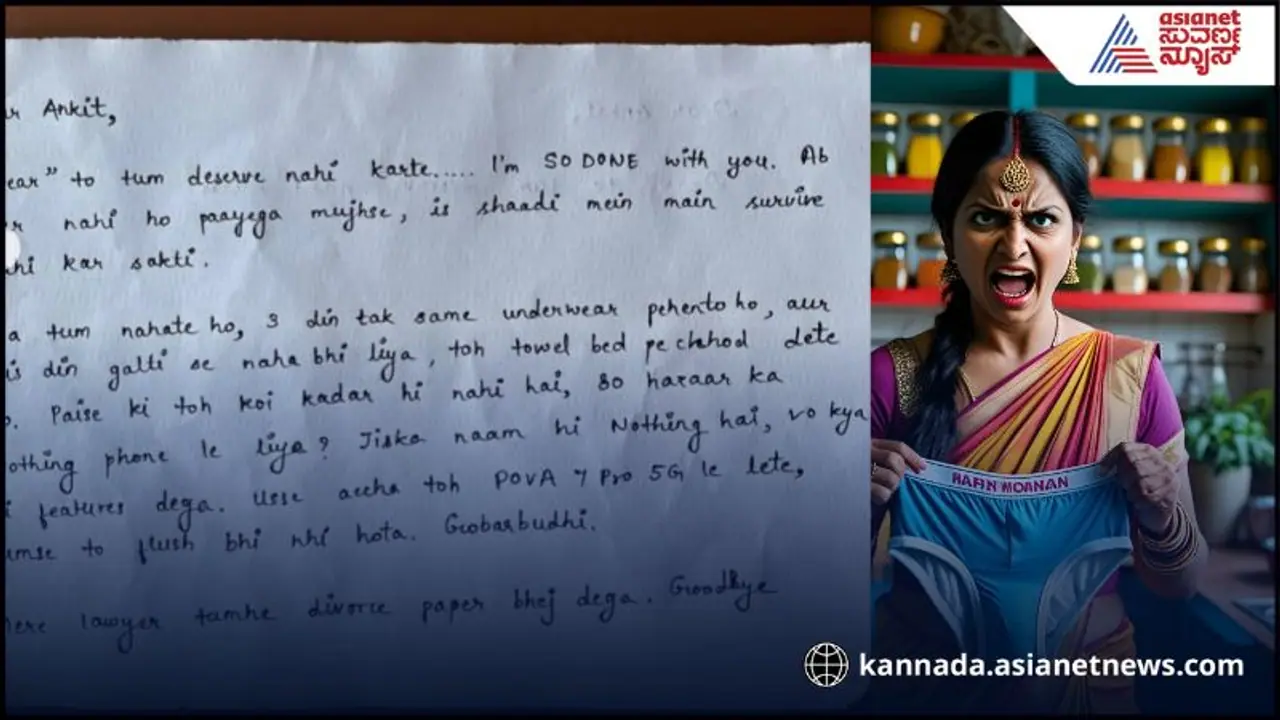 r Ankit,
ear" to tum deserve nahi karte..... I'm SO DONE with you. Ab
r nahi ho paayega mujhse, is shaadi mein main survive
hi kar sakti.
a tum nahate ho, 3 din tak same underwear pehento ho, aur
is din galti se naha bhi liya, toh towel bed pe chhod dete
o. Paise ki toh koi kadar hi nahi hai, 80 hazaar ka
othing phone le liya? Jiska naam hi Nothing hai, vo kya
i features dega. Usse accha toh POVA 7 Pro 5G le lete,
umse to flush bhi nhi hota. Goobarbudhi.
ere lawyer tumhe divorce paper bhej dega. Goodbye
asianet
ಸುವರ್ಣ
ನ್ಯೂಸ್
HARN MOANAN
kannada.asianetnews.com